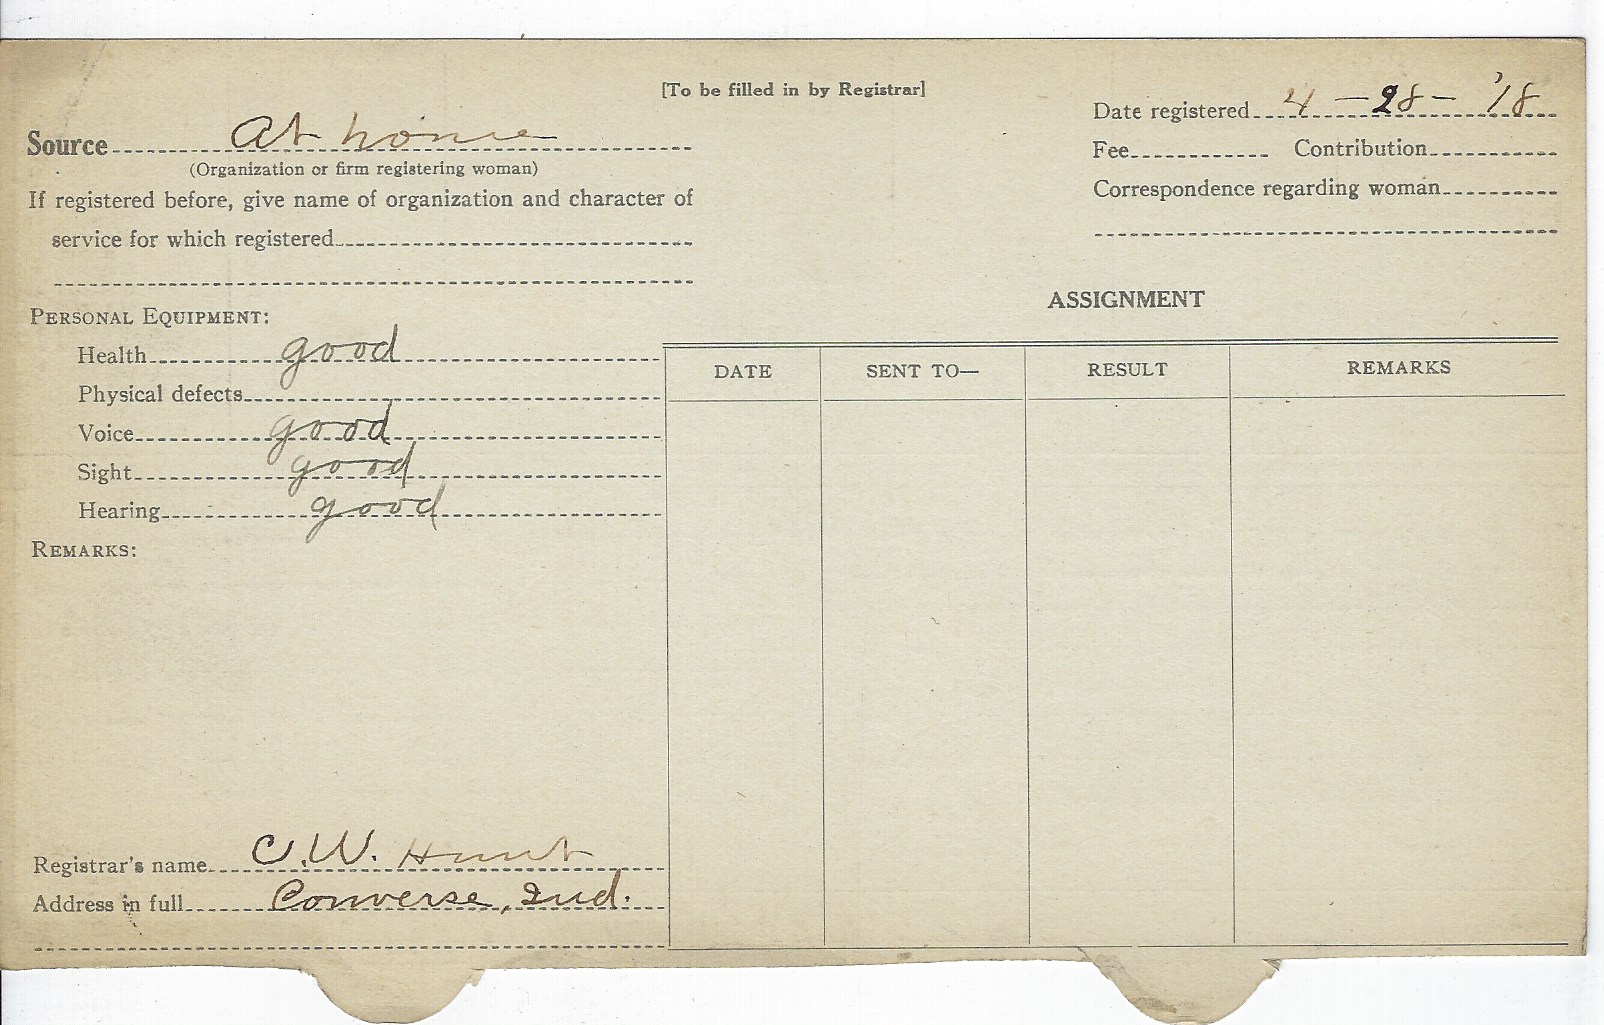 [To be filled in by Registrar]
Source At home
(Organization or firm registering woman)
If registered before, give name of organization and character of
service for which registered
Date registered 4-28-'18
Fee Contribution
Correspondence regarding woman
PERSONAL EQUIPMENT:
Health good
Physical defects
Voice good
Sight good
Hearing good
REMARKS:
Registrar's name C.W. Hunt
Address in full Converse, Ind.
ASSIGNMENT
DATE SENT TO— RESULT REMARKS